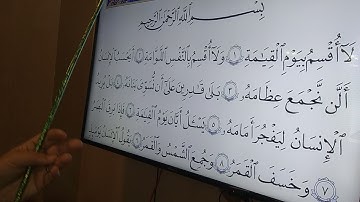 بِسْمِ اللَّهِ الرَّحْمَٰنِ الرَّحِيمِ
لَآ أُقْسِمُ بِيَوْمِ الْقِيَٰمَةِ ١ وَلَآ أُقْسِمُ بِالنَّفْسِ اللَّوَّامَةِ ٢ أَيَحْسَبُ الْإِنسَٰنُ
أَلَّن نَّجْمَعَ عِظَامَهُۥ ٣ بَلَىٰ قَٰدِرِينَ عَلَىٰٓ أَن نُّسَوِّىَ بَنَانَهُۥ ٤ بَلْ يُرِيدُ
الْإِنسَٰنُ لِيَفْجُرَ أَمَامَهُۥ ٥ يَسْـَٔلُ أَيَّانَ يَوْمُ الْقِيَٰمَةِ ٦ فَإِذَا بَرِقَ الْبَصَرُ
٧ وَخَسَفَ الْقَمَرُ ٨ وَجُمِعَ الشَّمْسُ وَالْقَمَرُ ٩ يَقُولُ الْإِنسَٰنُ يَوْمَئِذٍ